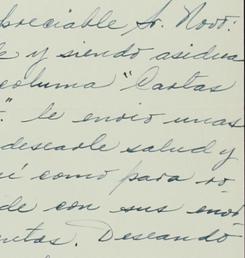 preciable Sr. Novo:
e y siendo asidua
columa "Cartas
." le envio unas
desearle salud y
í como para ro
de con sus enví
entas. Deseando